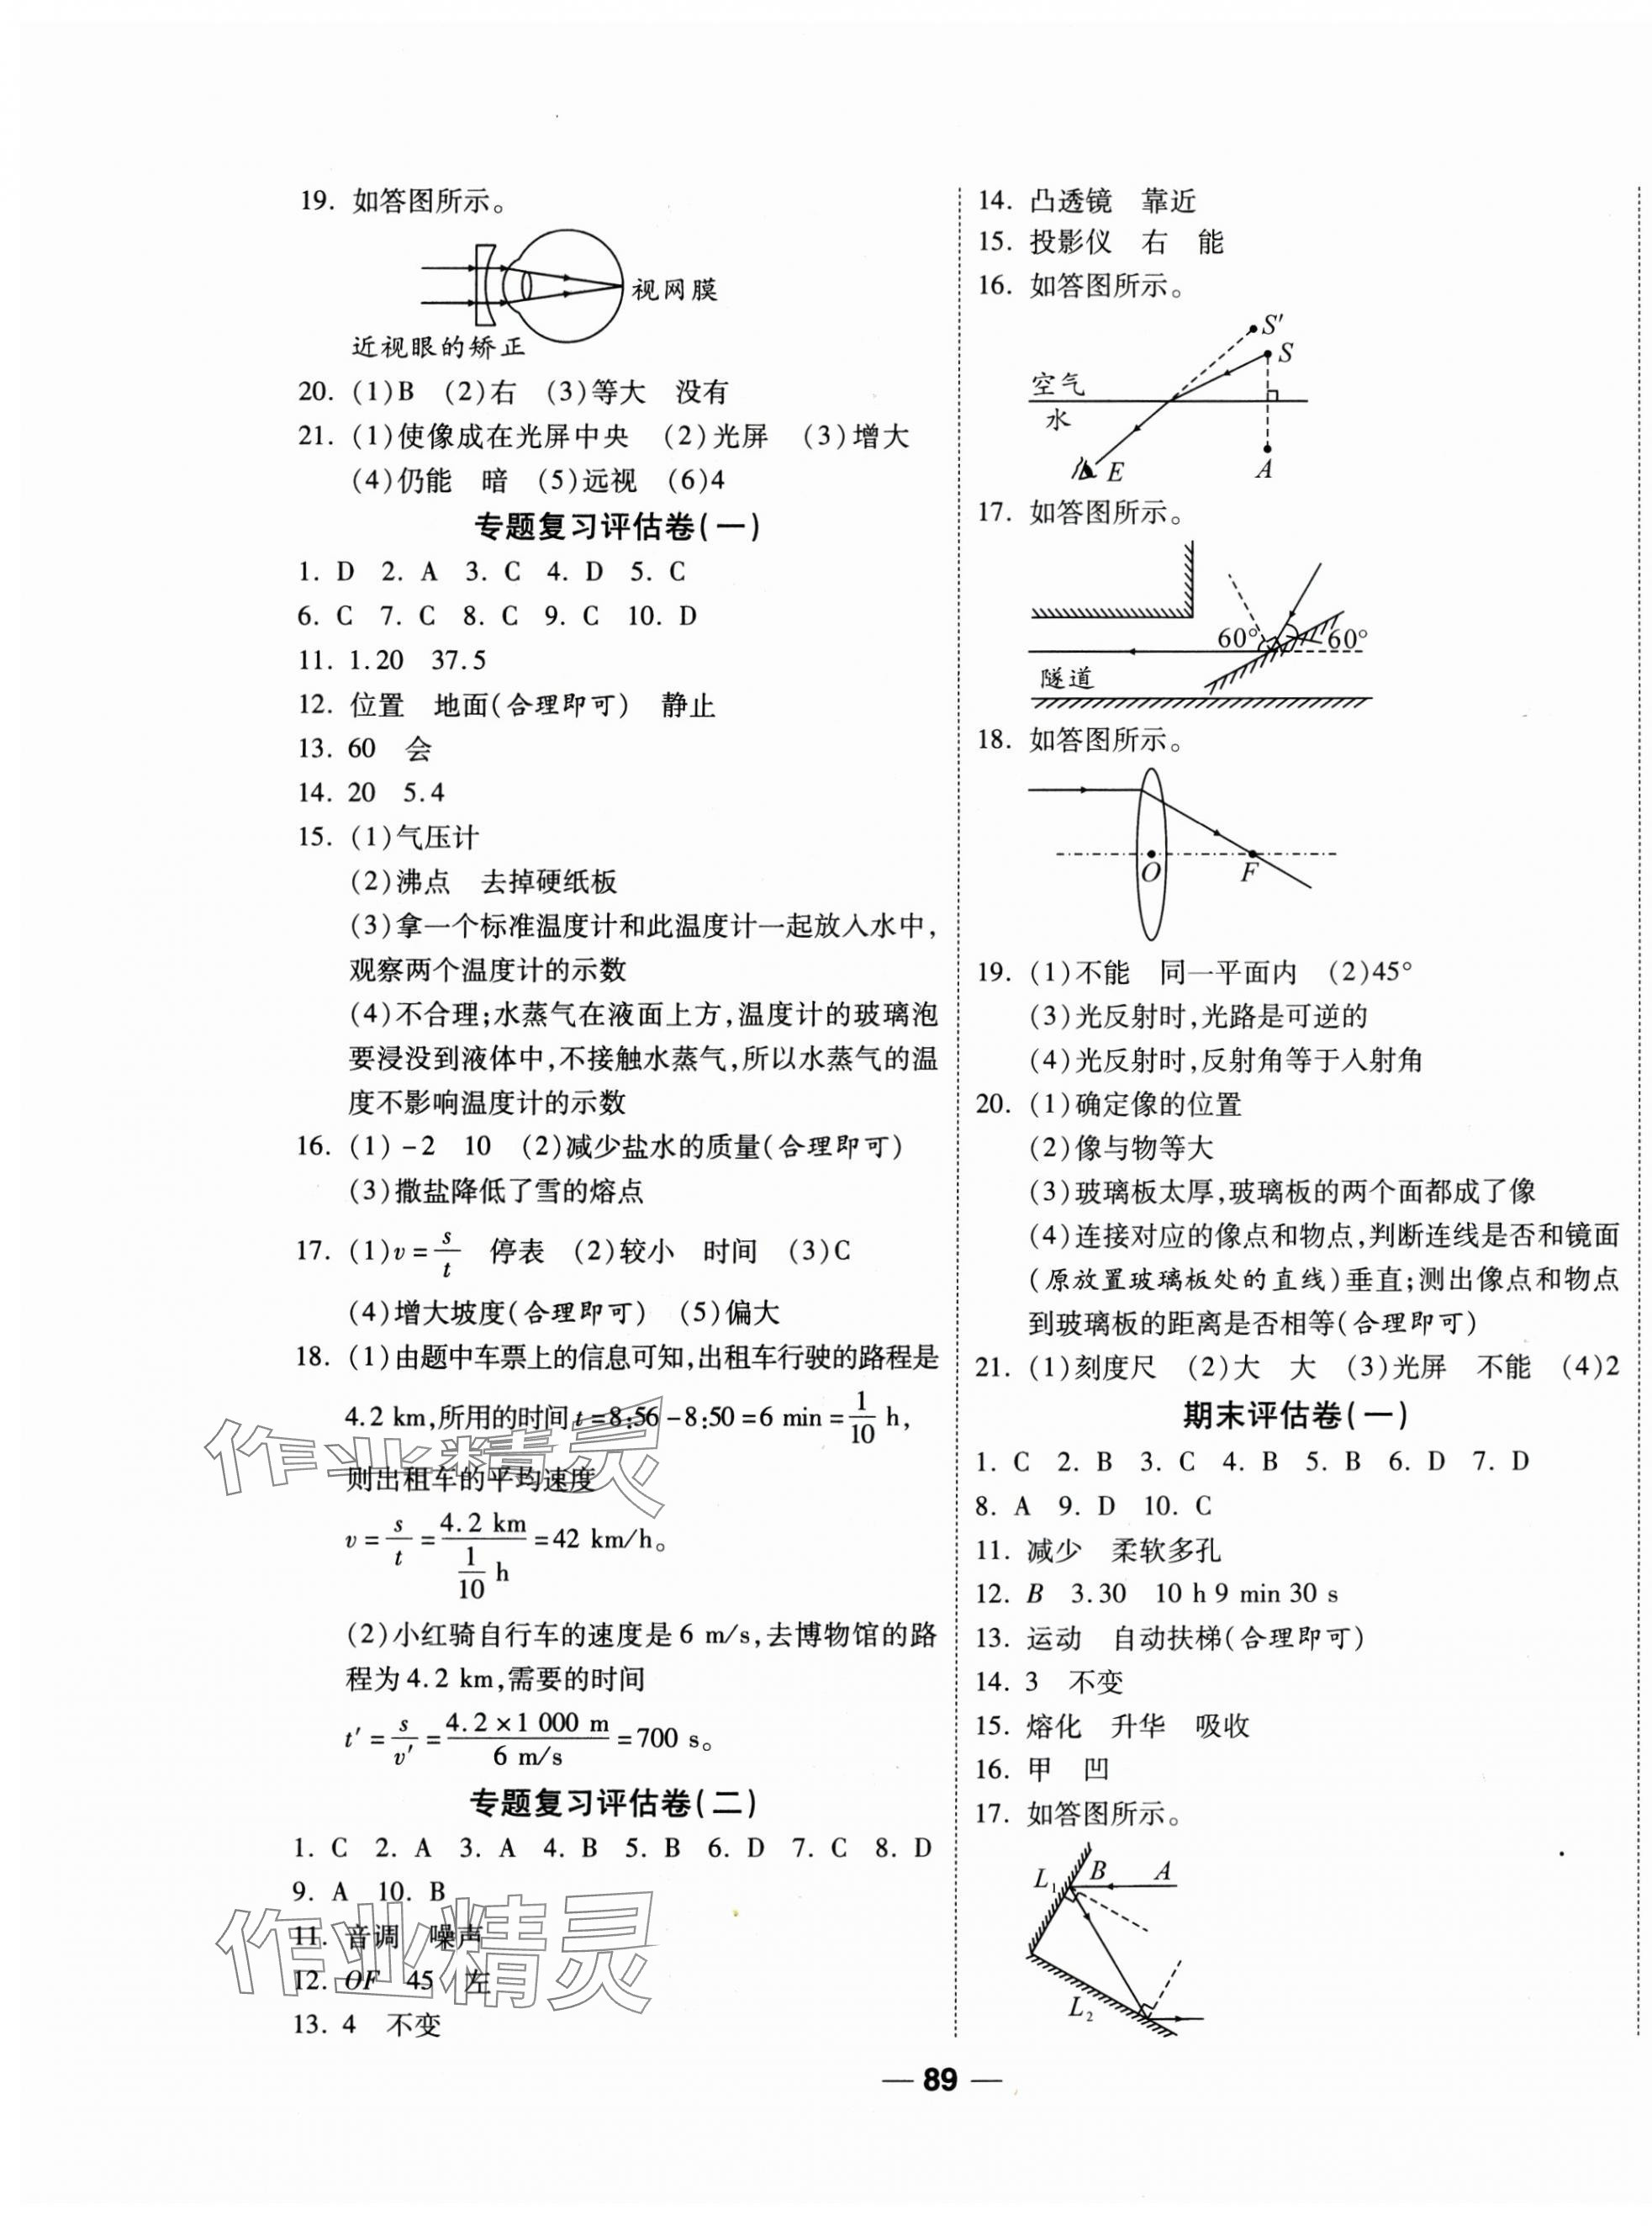 19. 如答图所示。
视网膜
近视眼的矫正
20. (1)B (2)右 (3)等大 没有
21. (1)使像成在光屏中央 (2)光屏 (3)增大
(4)仍能 暗 (5)远视 (6)4
专题复习评估卷(一)
1. D 2. A 3. C 4. D 5. C
6. C 7. C 8. C 9. C 10. D
11. 1.20 37.5
12. 位置 地面(合理即可) 静止
13. 60 会
14. 20 5.4
15. (1)气压计
(2)沸点 去掉硬纸板
(3)拿一个标准温度计和此温度计一起放入水中,
观察两个温度计的示数
(4)不合理;水蒸气在液面上方,温度计的玻璃泡
要浸没到液体中,不接触水蒸气,所以水蒸气的温
度不影响温度计的示数
16. (1)-2 10 (2)减少盐水的质量(合理即可)
(3)撒盐降低了雪的熔点
17. (1)v=s/t 停表 (2)较小 时间 (3)C
(4)增大坡度(合理即可) (5)偏大
18. (1)由题中车票上的信息可知,出租车行驶的路程是
4.2 km,所用的时间t=8:56-8:50=6 min=1/10 h,
则出租车的平均速度
v=s/t=4.2 km/(1/10 h)=42 km/h。
(2)小红骑自行车的速度是6 m/s,去博物馆的路
程为4.2 km,需要的时间
t′=s/v′=4.2×1 000 m/6 m/s=700 s。
专题复习评估卷(二)
1. C 2. A 3. A 4. B 5. B 6. D 7. C 8. D
9. A 10. B
11. 音调 噪声
12. OF 45 左
13. 4 不变
作业精灵
作业精灵
14. 凸透镜 靠近
15. 投影仪 右 能
16. 如答图所示。
S′
S
空气
水
E A
17. 如答图所示。
60° 60°
隧道
18. 如答图所示。
O F
19. (1)不能 同一平面内 (2)45°
(3)光反射时,光路是可逆的
(4)光反射时,反射角等于入射角
20. (1)确定像的位置
(2)像与物等大
(3)玻璃板太厚,玻璃板的两个面都成了像
(4)连接对应的像点和物点,判断连线是否和镜面
(原放置玻璃板处的直线)垂直;测出像点和物点
到玻璃板的距离是否相等(合理即可)
21. (1)刻度尺 (2)大 大 (3)光屏 不能 (4)2
期末评估卷(一)
1. C 2. B 3. C 4. B 5. B 6. D 7. D
8. A 9. D 10. C
11. 减少 柔软多孔
12. B 3.30 10 h 9 min 30 s
13. 运动 自动扶梯(合理即可)
14. 3 不变
15. 熔化 升华 吸收
16. 甲 凹
17. 如答图所示。
L1 B A
L2
— 89 —